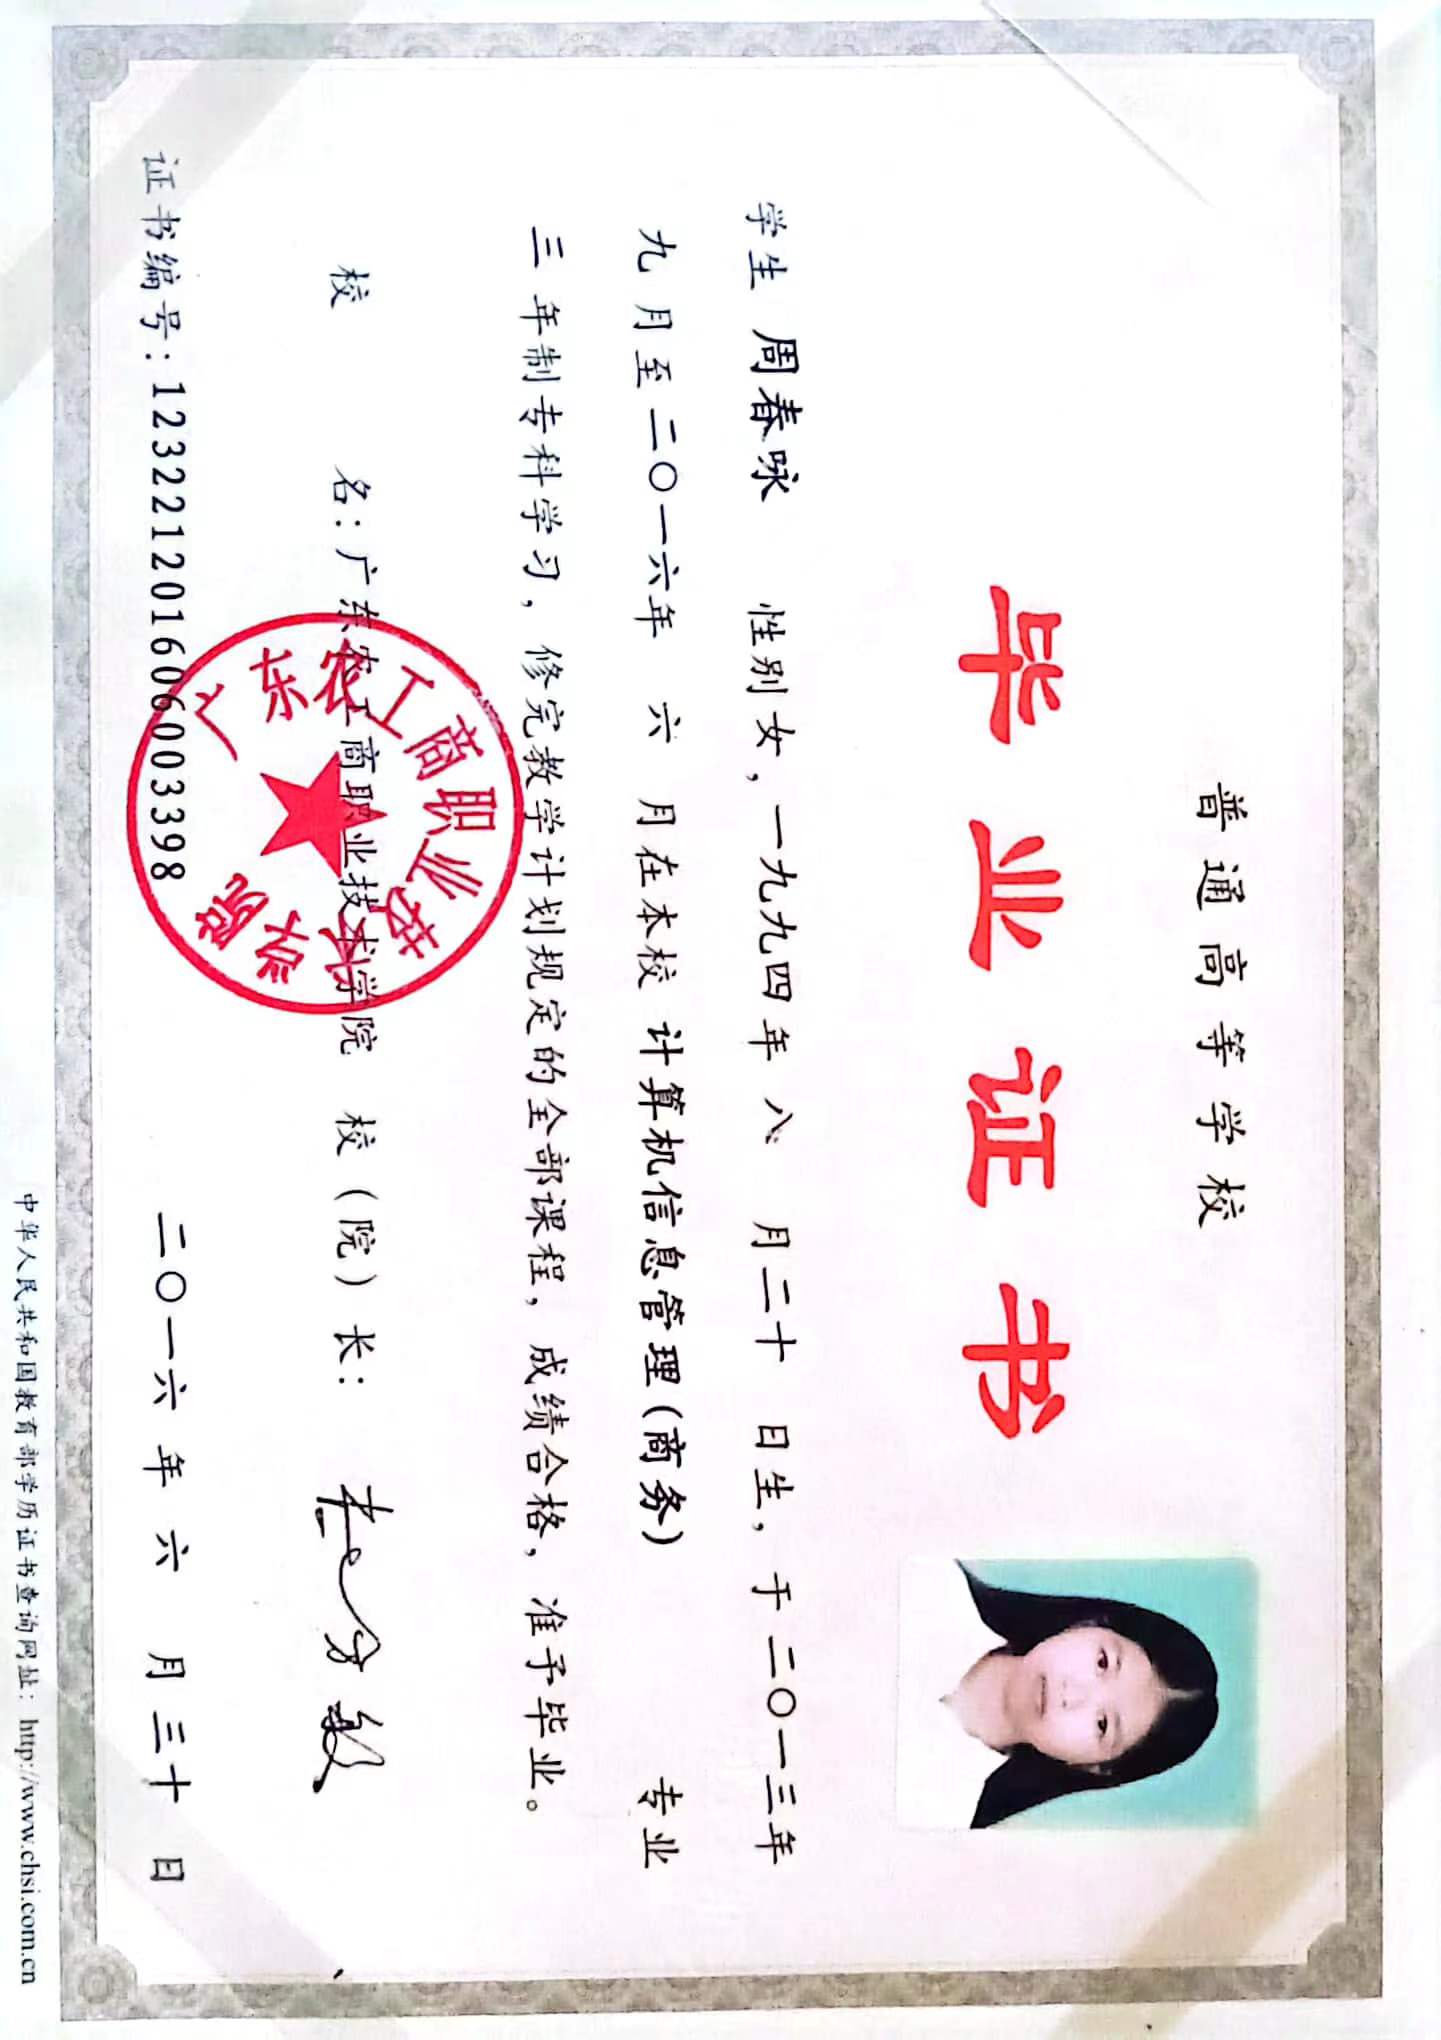 普通高等学校
毕业证书
学生 周春咏 性别女，一九九四年 八 月二十 日生，于二〇一三年
九 月至二〇一六年 六 月在本校 计算机信息管理(商务) 专业
三 年制专科学习，修完教学计划规定的全部课程，成绩合格，准予毕业。
校 名：广东农工商职业技术学院 校（院）长：
广东农工商职业技术学院
证书编号：123221201606003398 二〇一六 年 六 月 三十 日
中华人民共和国教育部学历证书查询网址：http://www.chsi.com.cn